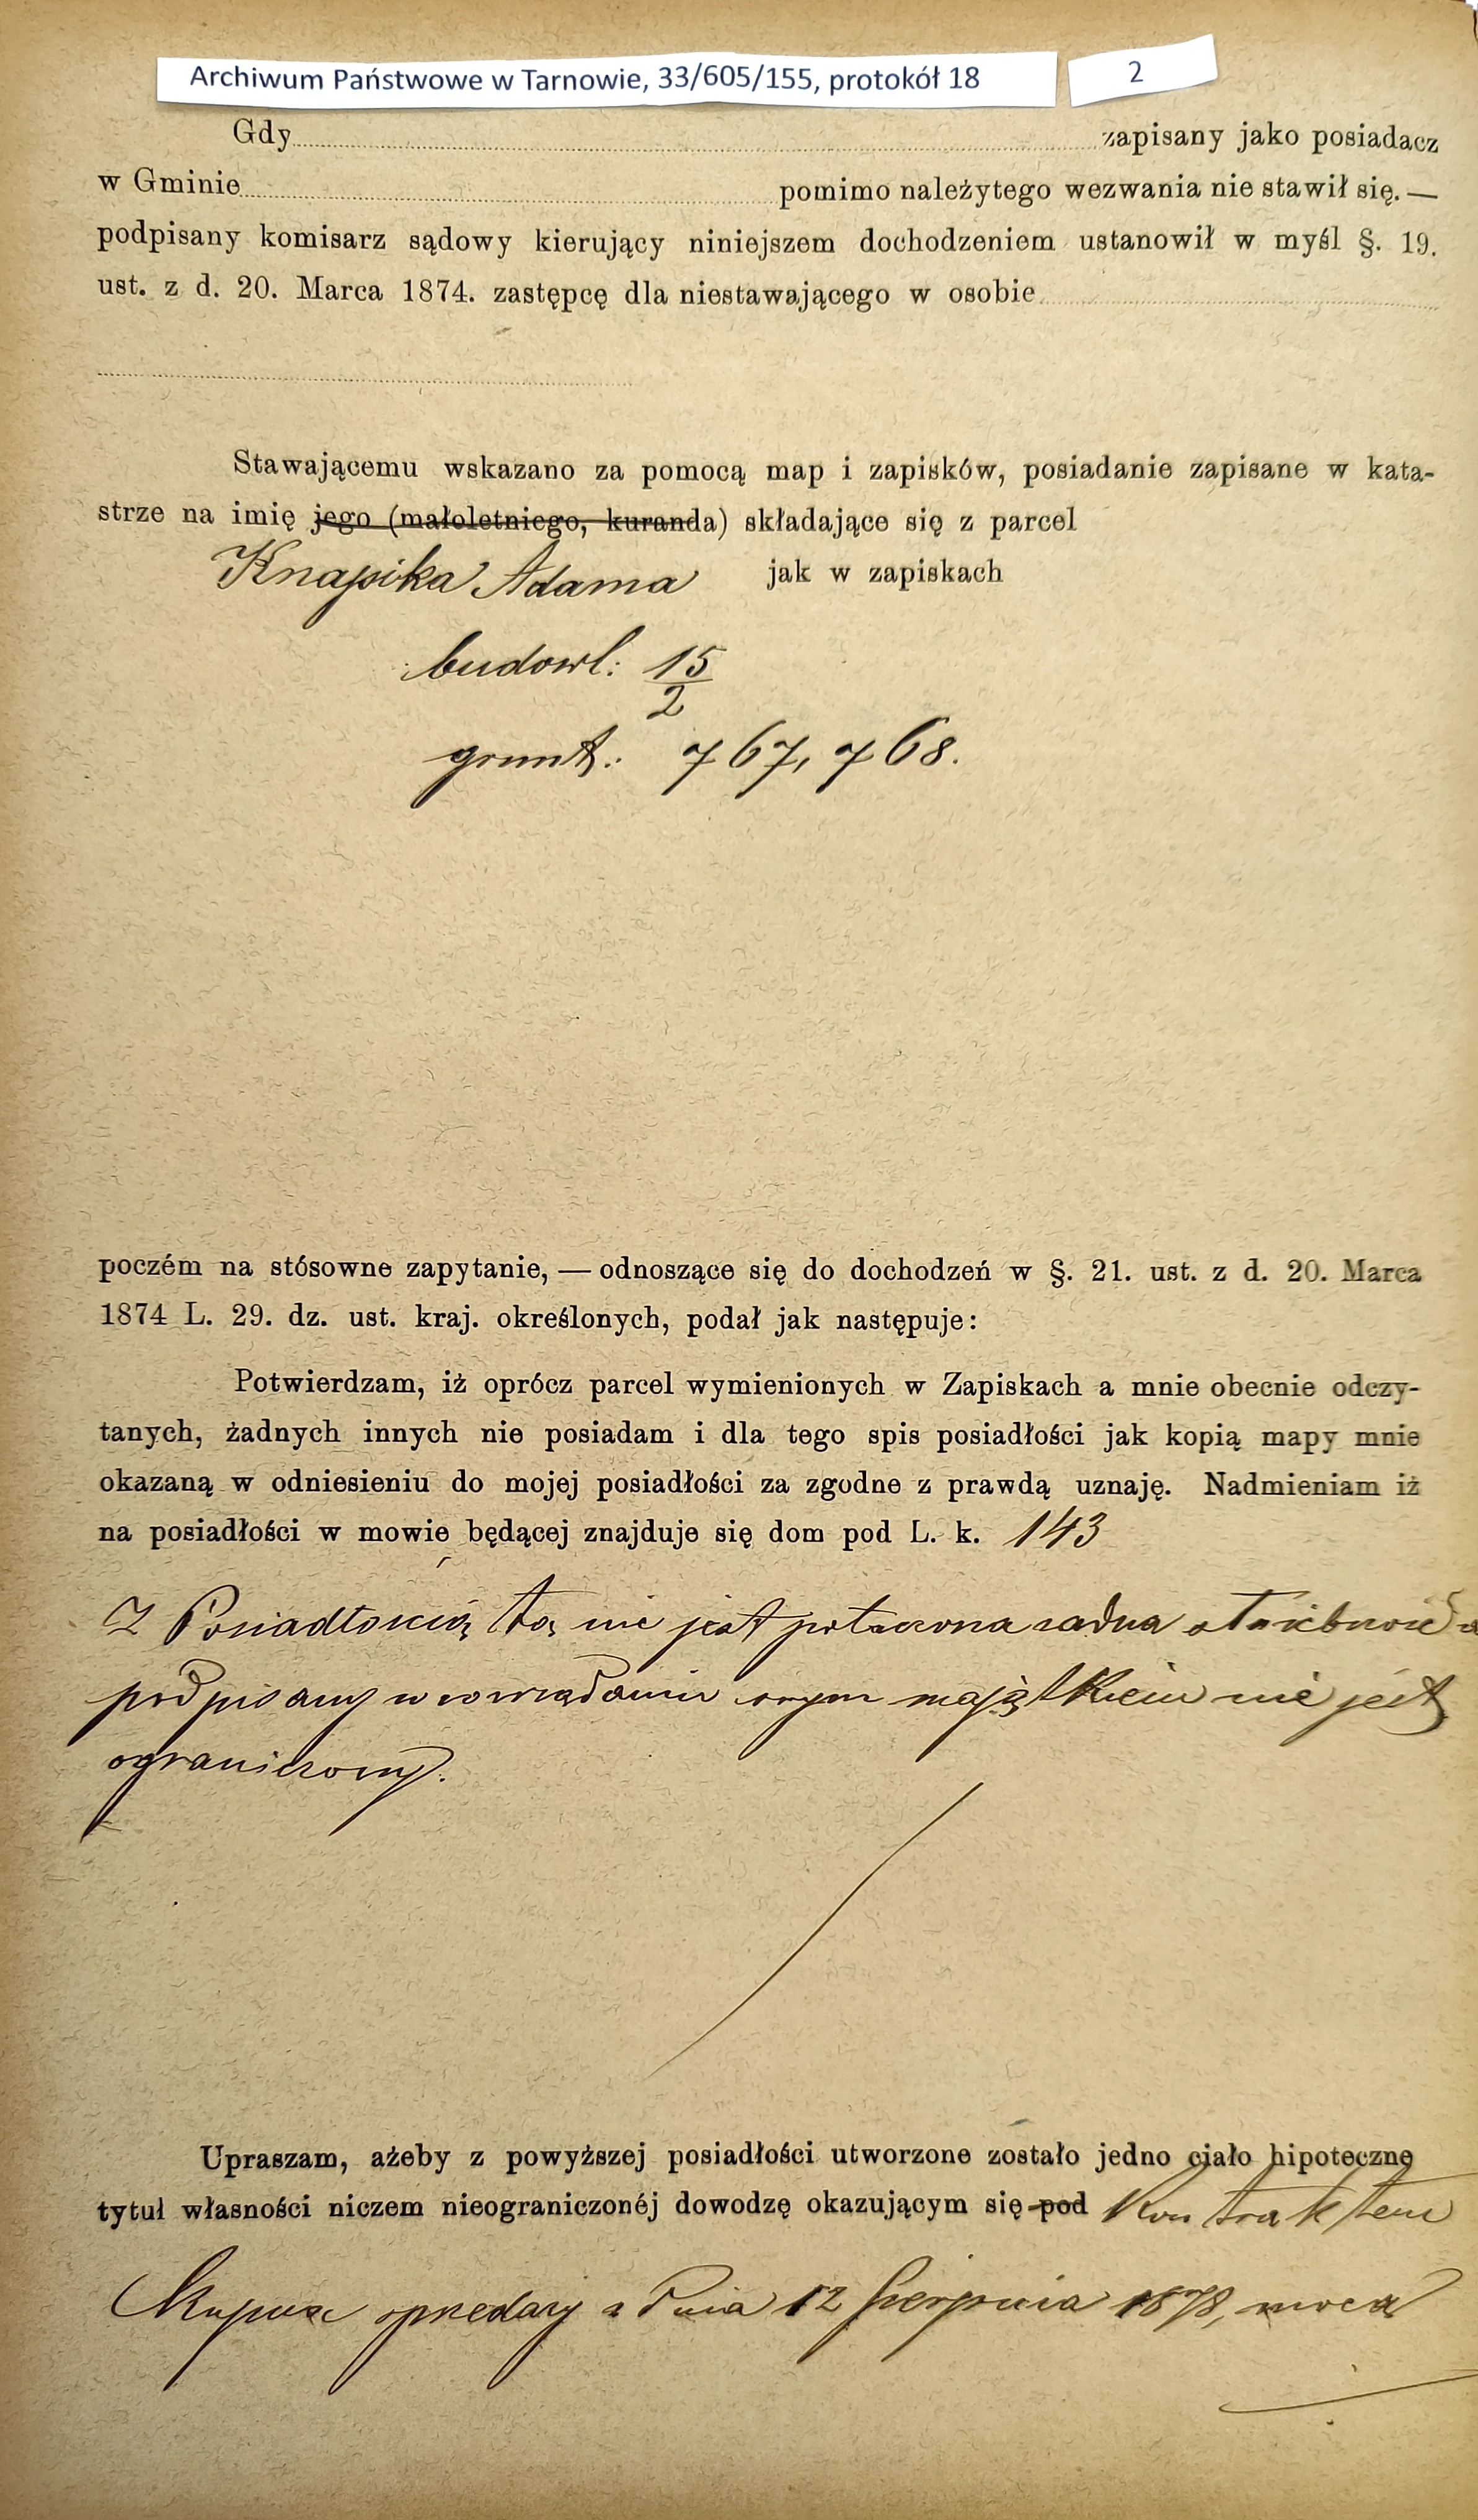 Archiwum Państwowe w Tarnowie, 33/605/155, protokół 18
2
Gdy zapisany jako posiadacz
w Gminie pomimo należytego wezwania nie stawił się. —
podpisany komisarz sądowy kierujący niniejszem dochodzeniem ustanowił w myśl §. 19.
ust. z d. 20. Marca 1874. zastępcę dla niestawającego w osobie
Stawającemu wskazano za pomocą map i zapisków, posiadanie zapisane w kata-
strze na imię jego (małoletniego, kuranda) składające się z parcel
Knapika Adama jak w zapiskach
budowl: 15/2
grunt.: 767, 768.
poczém na stósowne zapytanie, — odnoszące się do dochodzeń w §. 21. ust. z d. 20. Marca
1874 L. 29. dz. ust. kraj. określonych, podał jak następuje:
Potwierdzam, iż oprócz parcel wymienionych w Zapiskach a mnie obecnie odczy-
tanych, żadnych innych nie posiadam i dla tego spis posiadłości jak kopią mapy mnie
okazaną w odniesieniu do mojej posiadłości za zgodne z prawdą uznaję. Nadmieniam iż
na posiadłości w mowie będącej znajduje się dom pod L. k. 143
Z Posiadłością tą nie jest połączona żadna służebność a
podpisany w zawiadaniu swym majątkiem nie jest
ograniczony.
Upraszam, ażeby z powyższej posiadłości utworzone zostało jedno ciało hipoteczne
tytuł własności niczem nieograniczonéj dowodzę okazującym się pod Kontraktem
Kupna sprzedaży z dnia 12 Sierpnia 1878, mocą